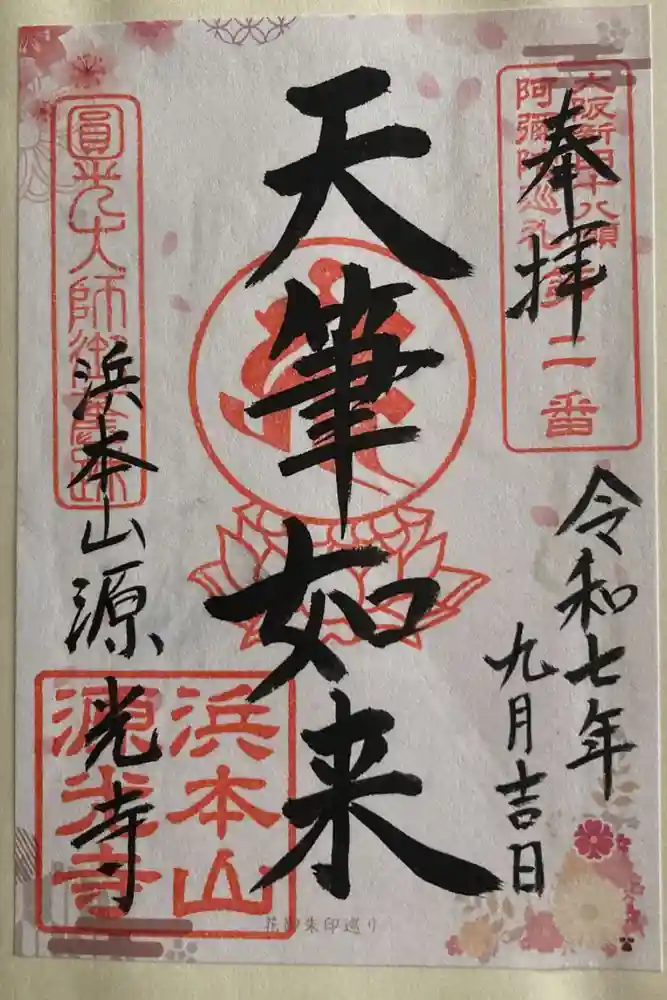 奉拝
大阪新四十八願
阿彌陀巡礼
第二番
令和七年
九月吉日
天筆如来
圓光大師御舊跡
浜本山源光寺
浜本山
源光寺
花御朱印巡り